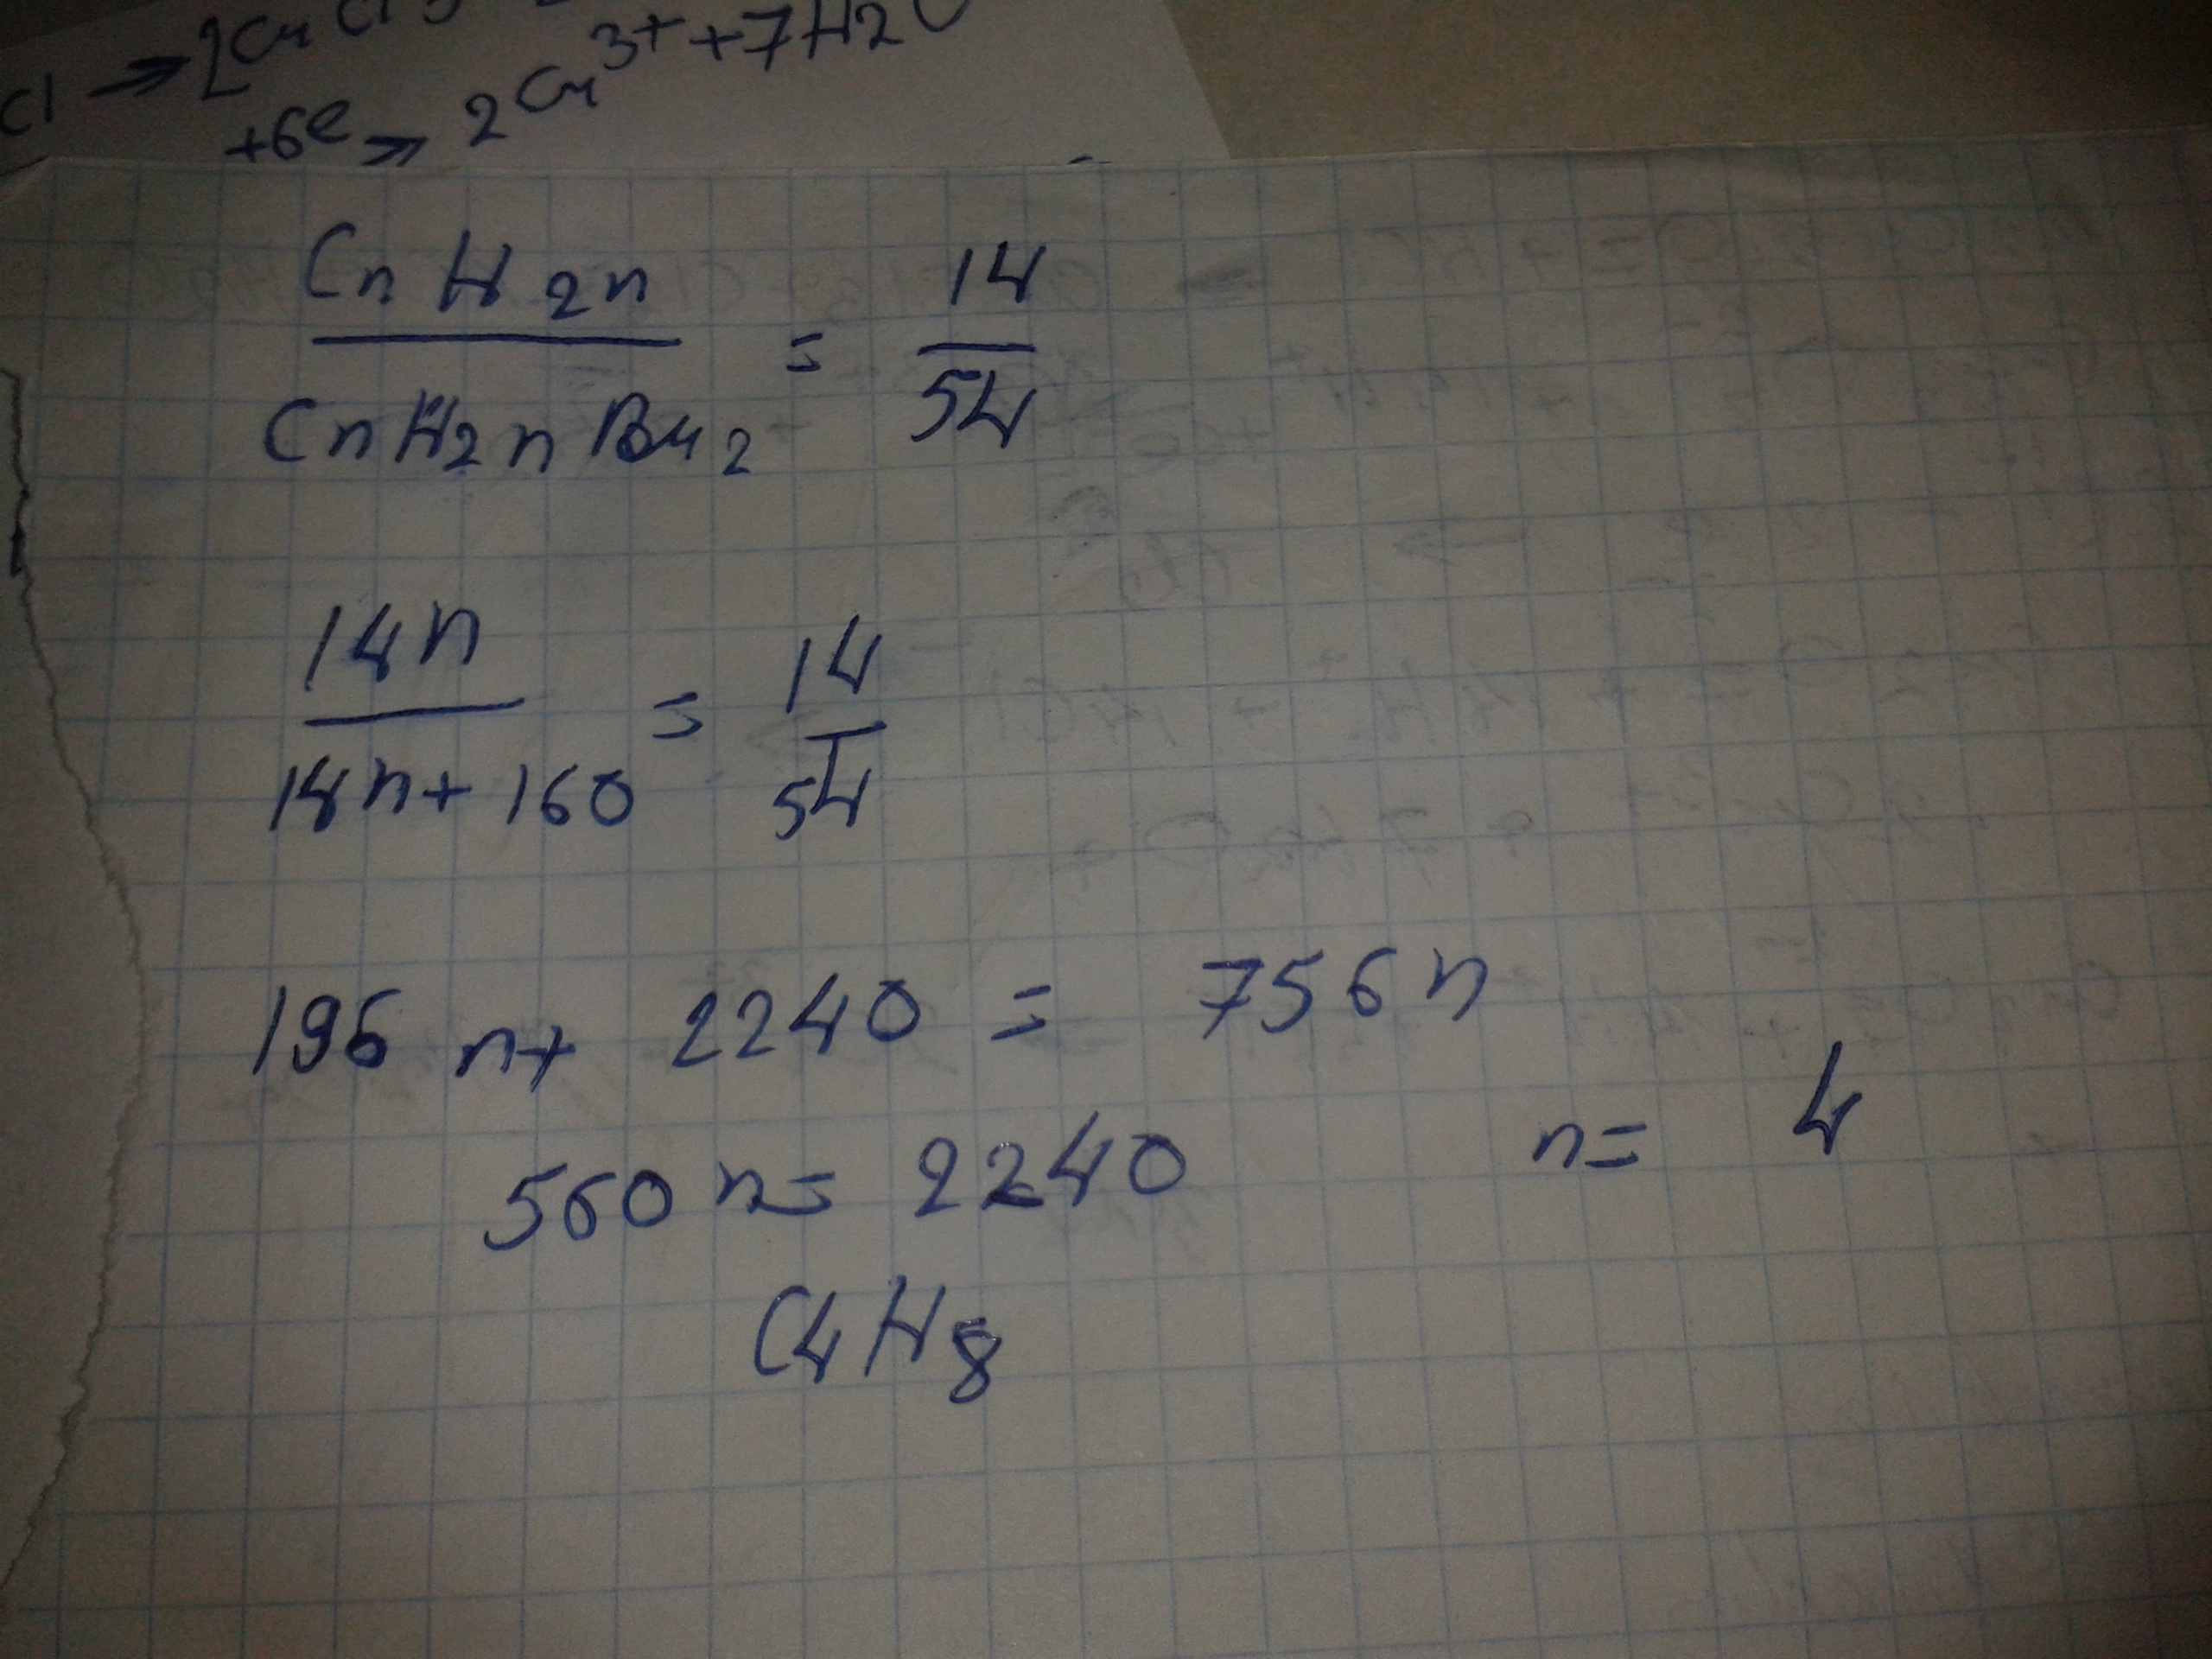 Cl → 2CrCl3
+6e → 2Cr3+ + 7H2O
CnH2n / CnH2nBr2 = 14 / 54
14n / 14n + 160 = 14 / 54
196n + 2240 = 756n
560n = 2240 n = 4
C4H8